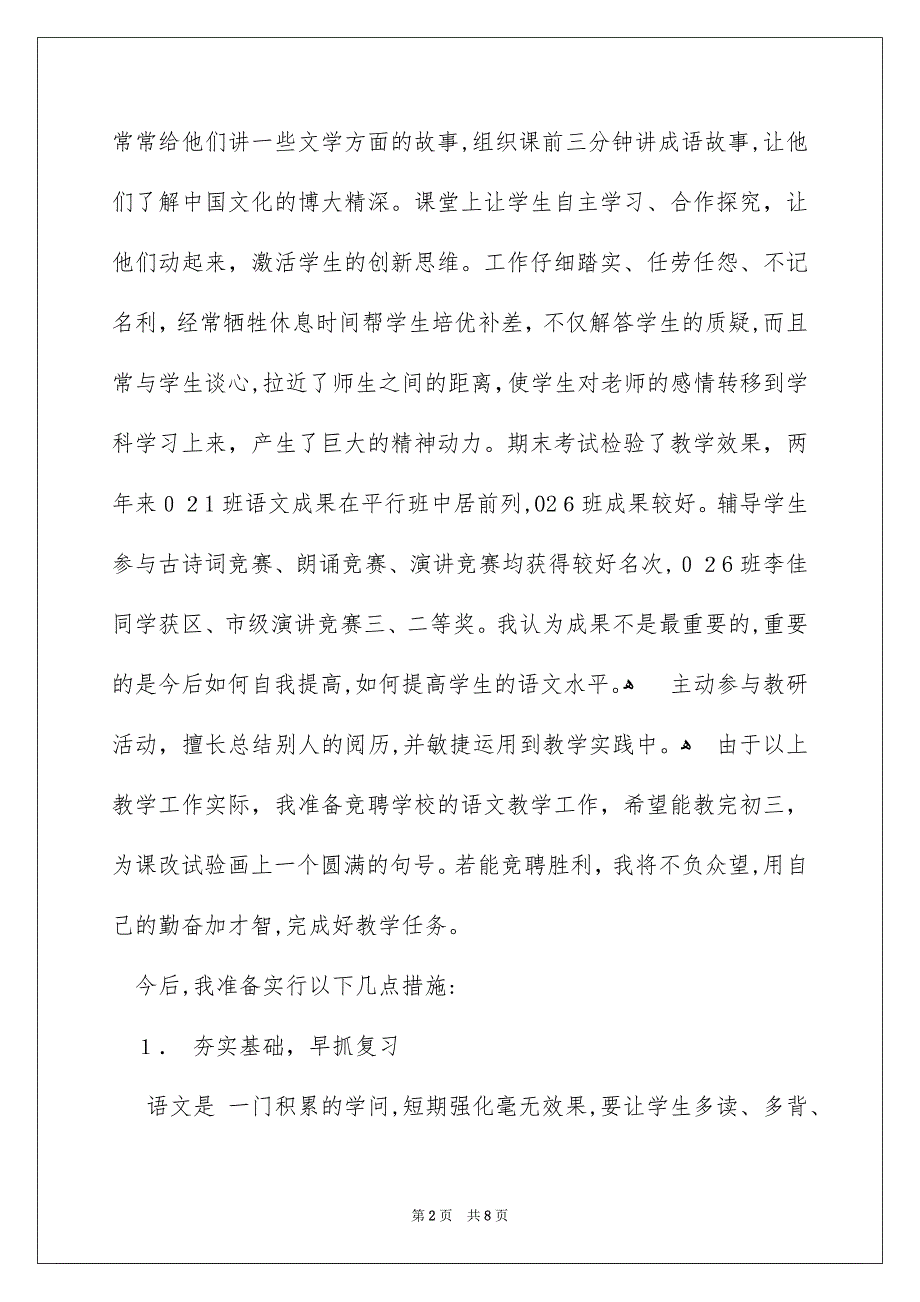 常常给他们讲一些文学方面的故事,组织课前三分钟讲成语故事,让他
们了解中国文化的博大精深。课堂上让学生自主学习、合作探究，让
他们动起来，激活学生的创新思维。工作仔细踏实、任劳任怨、不记
名利，经常牺牲休息时间帮学生培优补差，不仅解答学生的质疑,而且
常与学生谈心,拉近了师生之间的距离,使学生对老师的感情转移到学
科学习上来，产生了巨大的精神动力。期末考试检验了教学效果，两
年来０２1班语文成果在平行班中居前列,02６班成果较好。辅导学生
参与古诗词竞赛、朗诵竞赛、演讲竞赛均获得较好名次,０２６班李佳
同学获区、市级演讲竞赛三、二等奖。我认为成果不是最重要的,重要
的是今后如何自我提高,如何提高学生的语文水平。ﻫ 主动参与教研
活动，擅长总结别人的阅历,并敏捷运用到教学实践中。ﻫ 由于以上
教学工作实际，我准备竞聘学校的语文教学工作，希望能教完初三，
为课改试验画上一个圆满的句号。若能竞聘胜利，我将不负众望,用自
己的勤奋加才智,完成好教学任务。
今后,我准备实行以下几点措施:
１． 夯实基础，早抓复习
语文是 一门积累的学问,短期强化毫无效果,要让学生多读、多背、
第2页 共8页